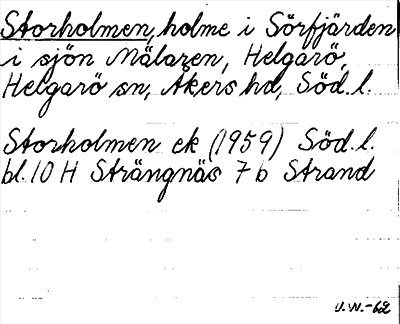 Storholmen, holme i Sörfjärden
i sjön Mälaren, Helgarö,
Helgarö sn, Åkers hd, Söd. l.
Storholmen ek (1959) Söd. l.
bl. 10 H Strängnäs 7 b Strand
U.W.-62